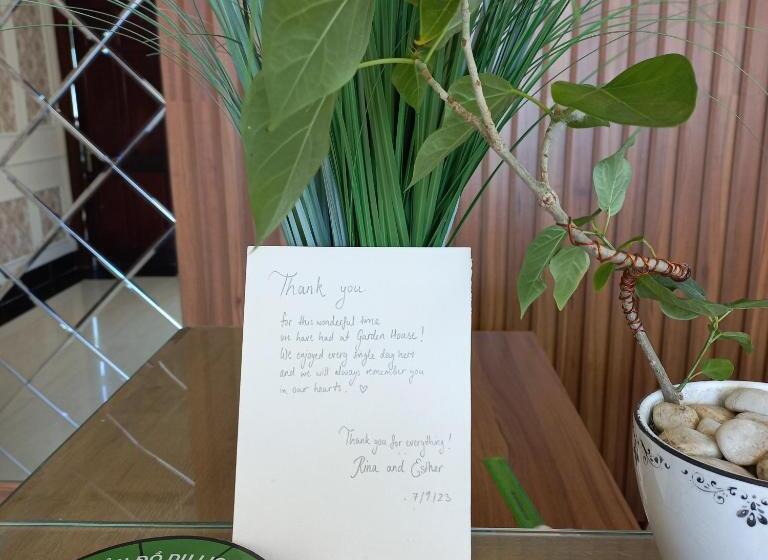 Thank you
for this wonderful time
we have had at Garden House!
We enjoyed every single day here
and we will always remember you
in our hearts. ♡
Thank you for everything!
Rina and Esther
7/9/23